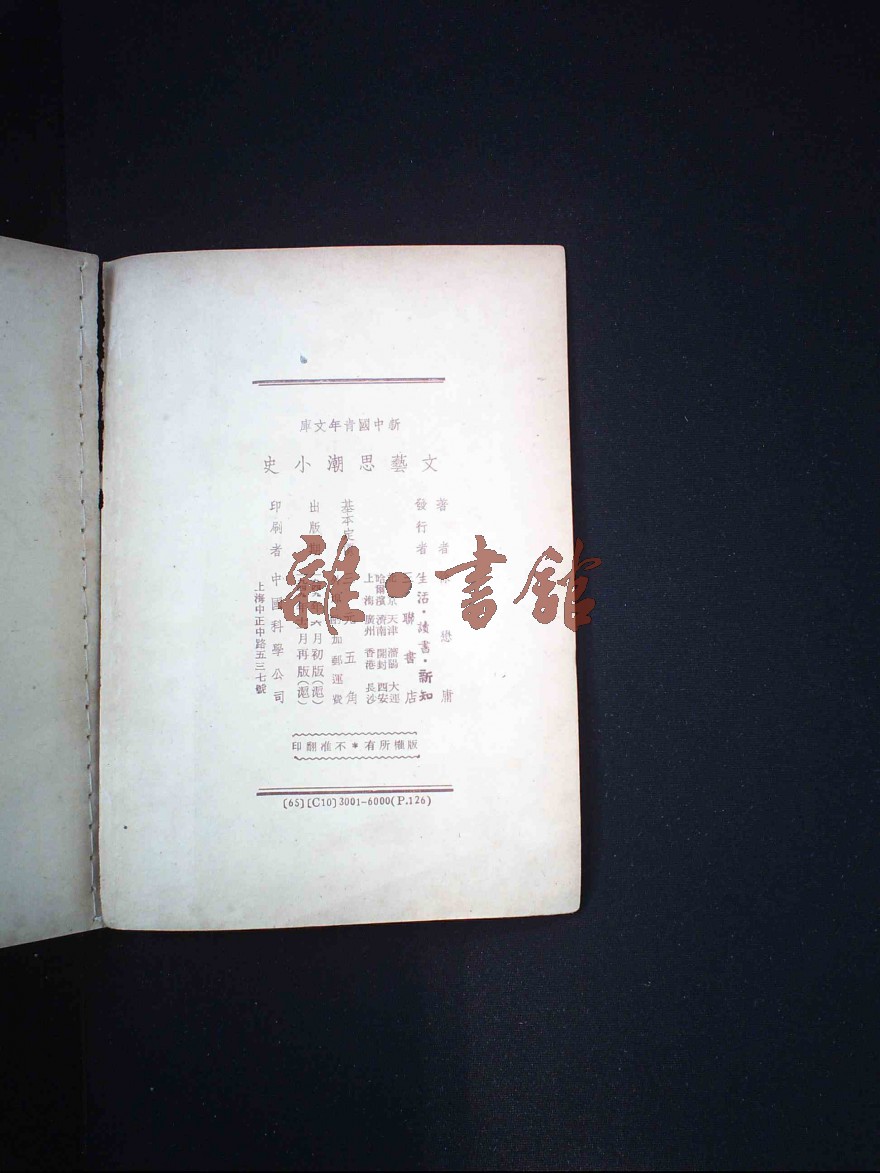 新中國青年文庫
文藝思潮小史
著者 戀庸
發行者 生活·讀書·新知
三聯書店
北京 天津 瀋陽 大連
哈爾濱 濟南 開封 西安
上海 廣州 香港 長沙
基本定 元五角
加郵運費
出版 六月初版(滬)
月再版(滬)
印刷者 中國科學公司
上海中正中路五三七號
版權所有*不准翻印
[65][C10]3001-6000(P.126)
雜·書館